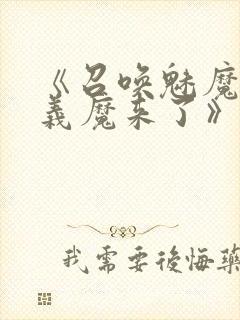 《召唤魅魔
義魔来了》
我需要後悔藥